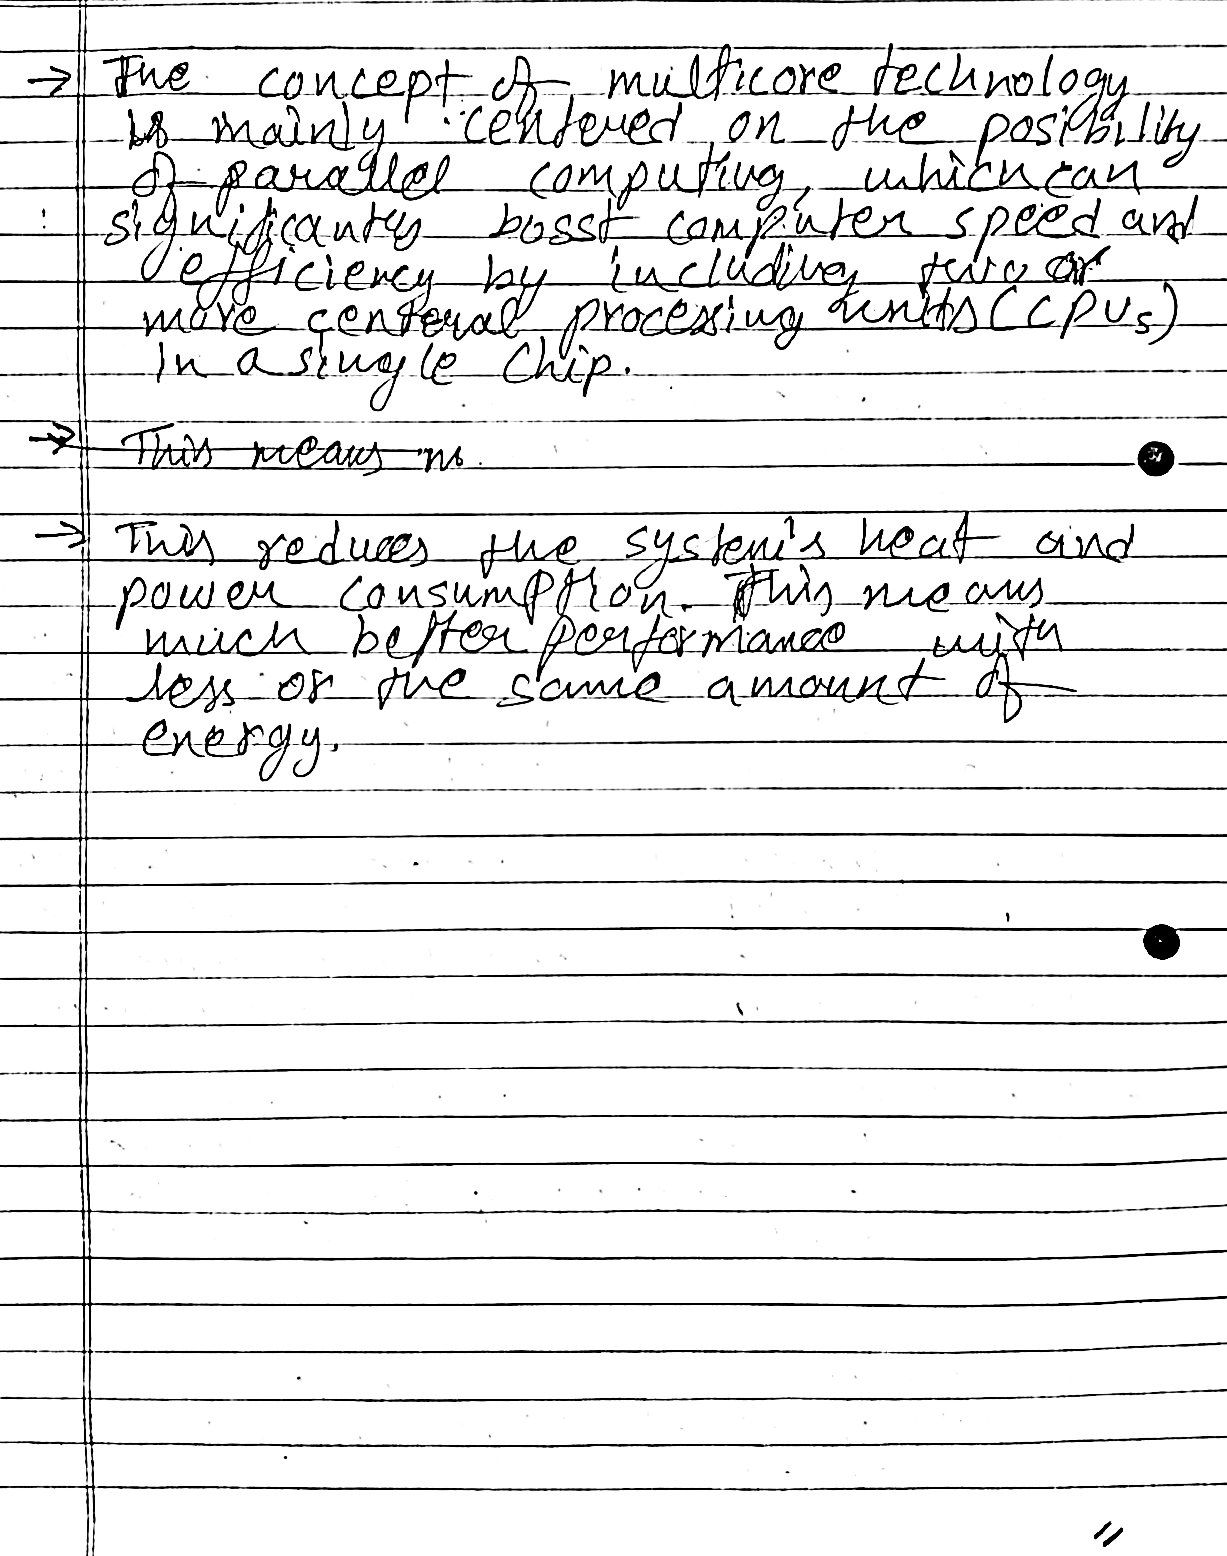 → The concept of multicore technology
is mainly centered on the posibility
of parallel computing, which can
significantly bosst computer speed and
efficiency by including two or
more centeral processing units (CPUs)
in a single chip.
→ This means m
→ This reduces the system's heat and
power consumption. This means
much better performance with
less or the same amount of
energy.
11